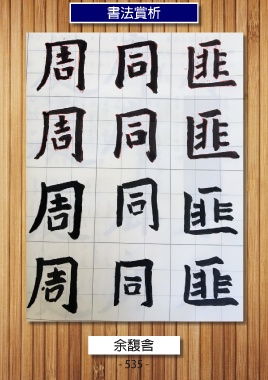 書法賞析
周 同 匪
周 同 匪
周 同 匪
周 同 匪
余馥舍
- 535 -